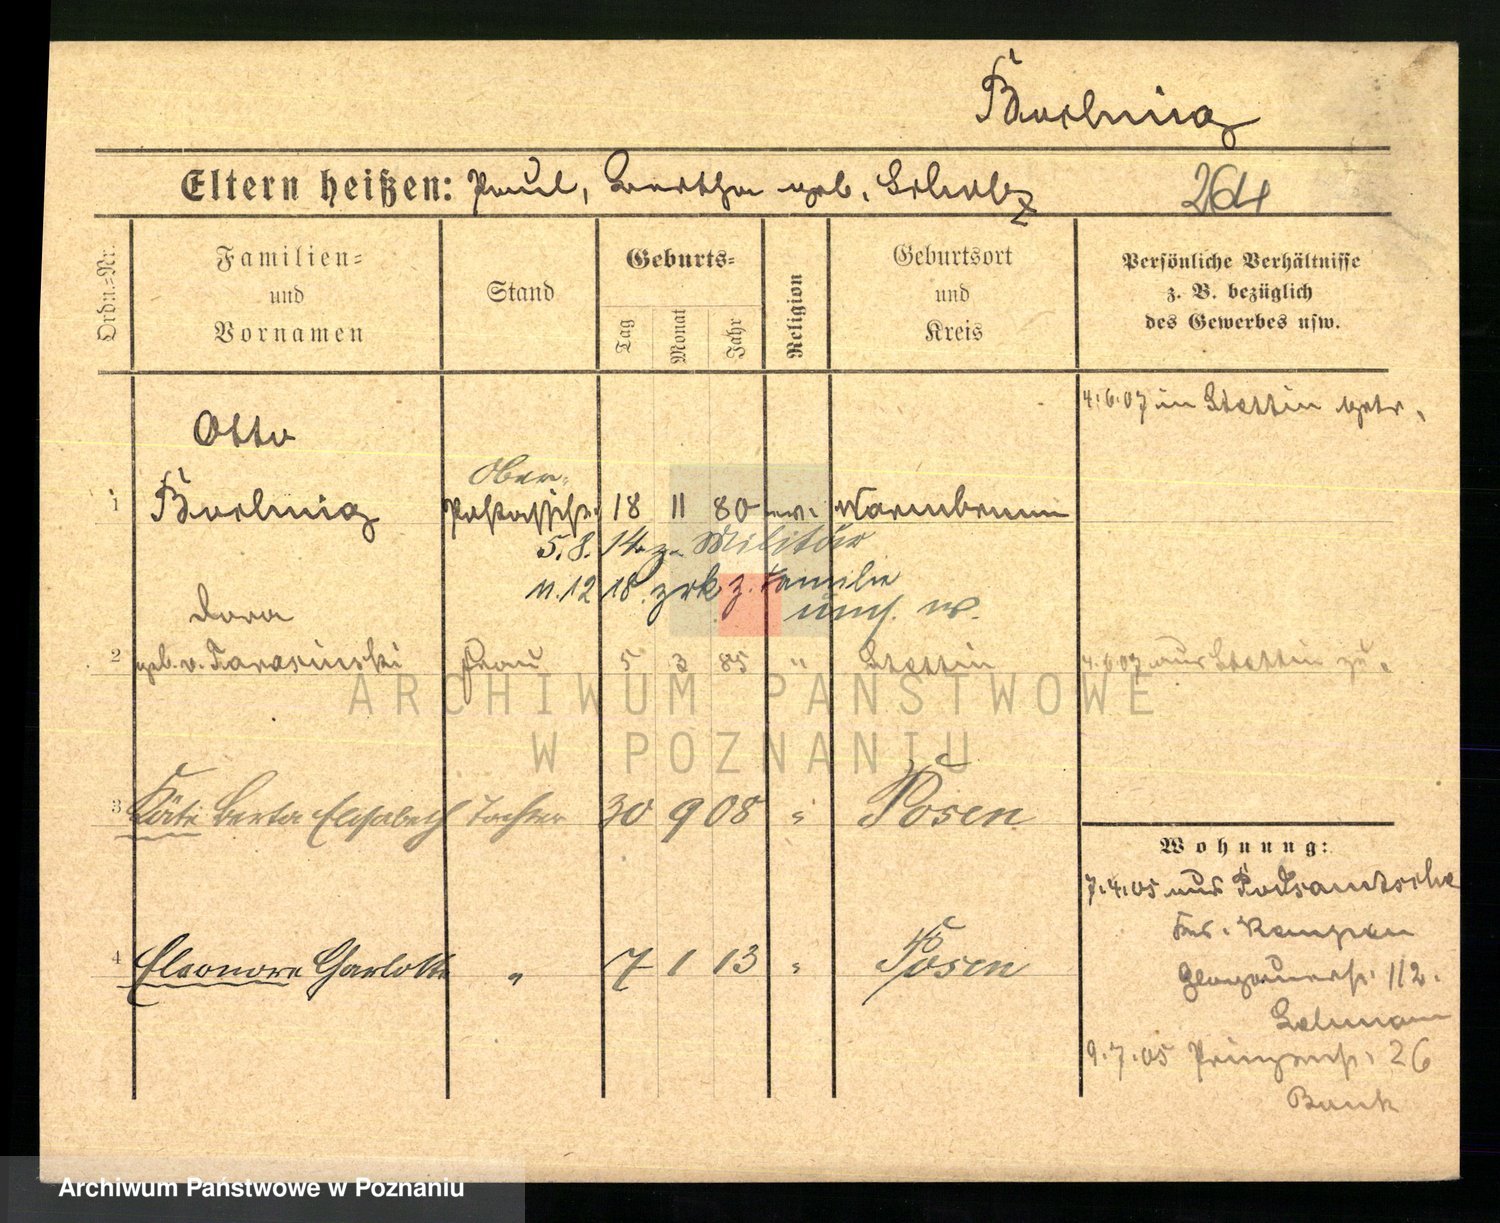 Eltern heißen: Paul, Bertha geb. Scholz
264
Ordn.=Nr.
Familien=
und
Vornamen
Stand
Geburts=
Tag
Monat
Jahr
Religion
Geburtsort
und
Kreis
Persönliche Verhältnisse
z. B. bezüglich
des Gewerbes usw.
4.6.07 in Stettin getr.
Otto
Ober-
1 18 11 80 ev. Warmbrunn
5.8.14 z. Militär
11.12 18 zrk z. Familie
Dora
2 geb. v. Frau 5 3 85 " Stettin 4.6.07 aus Stettin zu.
3 Käte Berta Elisabeth Tochter 30 9 08 " Posen
4 Eleonore Charlotte " 7 1 13 " Posen
Wohnung:
7.4.05 aus
Krs. Kempen
Glogauerstr. 112.
9.7.05 Prinzenstr. 26
Bank
ARCHIWUM PAŃSTWOWE
W POZNANIU
Archiwum Państwowe w Poznaniu